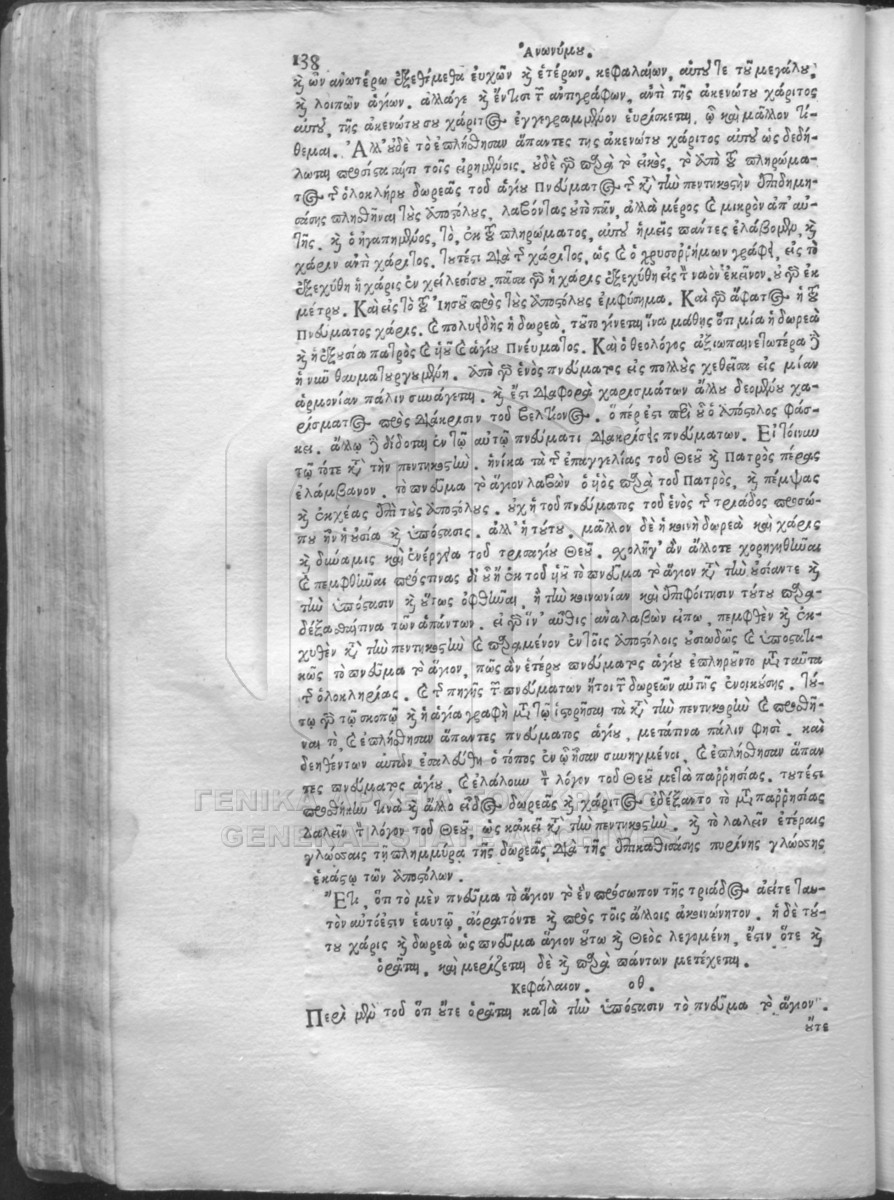 138
Ἀνωνύμου.
καὶ ὧν ἀνωτέρω ἐξεθέμεθα εὐχῶν καὶ ἑτέρων κεφαλαίων, αὐτοῦ τε τοῦ μεγάλου,
καὶ λοιπῶν ἁγίων. ἀλλάγε καὶ ἔν τισι τῶν ἀντιγράφων, ἀντὶ τῆς ἀκενώτου χάριτος
αὐτοῦ, τῆς ἀκενώτου σου χάριτος ἐγγεγραμμένον εὑρίσκεται, ᾧ καὶ μᾶλλον τί-
θεμαι. Ἀλλ' οὐδὲ τὸ ἐπλήσθησαν ἅπαντες τῆς ἀκενώτου χάριτος αὐτοῦ ὡς δεδή-
λωται προσίσταταί τι τοῖς εἰρημένοις. οὐδὲ γὰρ παρὰ τὸ εἰκὸς, τὸ ἀπὸ τοῦ πληρώμα-
τος τῆς ὁλοκλήρου δωρεᾶς τοῦ ἁγίου Πνεύματος τῆς κατὰ τὴν πεντηκοστὴν ἐπιδημη-
σάσης πλησθῆναι τοὺς ἀποστόλους, λαβόντας οὐ τὸ πᾶν, ἀλλὰ μέρος καὶ μικρὸν ἀπ' αὐ-
τῆς. καὶ ὁ ἠγαπημένος, τὸ, ἐκ τοῦ πληρώματος, αὐτοῦ ἡμεῖς πάντες ἐλάβομεν, καὶ
χάριν ἀντὶ χάριτος. τουτέστι διὰ τῆς χάριτος, ὡς καὶ ὁ χρυσορρήμων γράφει, εἰς τὸ
ἐξεχύθη ἡ χάρις ἐν χείλεσί σου. πᾶσα γὰρ ἡ χάρις ἐξεχύθη εἰς τὸν ναὸν ἐκεῖνον. οὐ γὰρ ἐκ
μέτρου. Καὶ εἰς τὸ τοῦ Ἰησοῦ πρὸς τοὺς ἀποστόλους ἐμφύσημα. Καὶ γὰρ ἄφατος ἡ τοῦ
Πνεύματος χάρις. καὶ πολυειδὴς ἡ δωρεά. τοῦτο γίνεται ἵνα μάθῃς ὅτι μία ἡ δωρεὰ
καὶ ἡ ἐξουσία πατρὸς καὶ υἱοῦ καὶ ἁγίου Πνεύματος. Καὶ ὁ θεολόγος
ἡ νῦν θαυματουργουμένη. ἀπὸ γὰρ ἑνὸς πνεύματος εἰς πολλοὺς χεθεῖσα εἰς μίαν
ἁρμονίαν πάλιν συνάγεται. καὶ ἔστι διαφορὰ χαρισμάτων ἄλλου δεομένου χα-
ρίσματος πρὸς διάκρισιν τοῦ βελτίονος. ὅπέρ ἐστι περὶ οὗ ὁ ἀπόστολος φάσ-
κει. ἄλλῳ δὲ δίδοται ἐν τῷ αὐτῷ πνεύματι διακρίσεις πνευμάτων. Εἰ τοίνυν
τῷ τότε κατὰ τὴν πεντηκοστήν. ἡνίκα τὰ τῆς ἐπαγγελίας τοῦ Θεοῦ καὶ Πατρὸς πέρας
ἐλάμβανον. τὸ πνεῦμα τὸ ἅγιον λαβὼν ὁ υἱὸς παρὰ τοῦ Πατρὸς, καὶ πέμψας
καὶ ἐκχέας ἐπὶ τοὺς ἀποστόλους. οὐχ ἡ τοῦ πνεύματος τοῦ ἑνὸς τῆς τριάδος προσώ-
που ἦν ἡ οὐσία καὶ ὑπόστασις. ἀλλ' ἡ τούτου. μᾶλλον δὲ ἡ κοινὴ δωρεὰ καὶ χάρις
καὶ δύναμις καὶ ἐνέργεια τοῦ τρισαγίου Θεοῦ. σχολῇ γ' ἂν ἄλλοτε χορηγηθῆναι
καὶ πεμφθῆναι πρός τινας δι' οὗ ἢ ἐκ τοῦ υἱοῦ τὸ πνεῦμα τὸ ἅγιον κατὰ τὴν οὐσίαν τε καὶ
τὴν ὑπόστασιν καὶ οὕτως ὀφθῆναι, ἢ τὴν κοινωνίαν καὶ ἐπιφοίτησιν τούτου παρα-
δέξασθαί τινα τῶν ἁπάντων. εἰ γὰρ ἵν' αὖθις ἀναλαβὼν εἴπω, πεμφθὲν καὶ ἐκ-
χυθὲν κατὰ τὴν πεντηκοστὴν καὶ παραμένον ἐν τοῖς ἀποστόλοις οὐσιωδῶς καὶ ὑποστατι-
κῶς τὸ πνεῦμα τὸ ἅγιον, πῶς ἂν ἑτέρου πνεύματος ἁγίου ἐπληροῦντο μετὰ ταῦτα
τῆς ὁλοκληρίας. καὶ τῆς πηγῆς τῶν πνευμάτων ἤτοι τῶν δωρεῶν αὐτοῖς ἐνοικούσης. τού-
τῳ γὰρ τῷ σκοπῷ καὶ ἡ ἁγία γραφὴ μετὰ τὸ ἱστορῆσαι τὰ κατὰ τὴν πεντηκοστὴν καὶ προσθῆ-
ναι τὸ, καὶ ἐπλήσθησαν ἅπαντες πνεύματος ἁγίου, μετά τινα πάλιν φησὶ. καὶ
δεηθέντων αὐτῶν ἐσαλεύθη ὁ τόπος ἐν ᾧ ἦσαν συνηγμένοι, καὶ ἐπλήσθησαν ἅπαν
τες πνεύματος ἁγίου, καὶ ἐλάλουν τὸν λόγον τοῦ Θεοῦ μετὰ παρρησίας. τουτέστι
προσθήκην τινὰ καὶ ἄλλο εἶδος δωρεᾶς καὶ χάριτος ἐδέξαντο τὸ μετὰ παρρησίας
λαλεῖν τὸν λόγον τοῦ Θεοῦ, ὡς κἀκεῖ κατὰ τὴν πεντηκοστήν. καὶ τὸ λαλεῖν ἑτέραις
γλώσσαις τῇ πλημμύρᾳ τῆς δωρεᾶς διὰ τῆς ἐπικαθισάσης πυρίνης γλώσσης
ἑκάστῳ τῶν ἀποστόλων.
Ἔτι, ὅτι τὸ μὲν πνεῦμα τὸ ἅγιον τὸ ἓν πρόσωπον τῆς τριάδος ἀεί τε ταυ-
τὸν αὐτό ἐστιν ἑαυτῷ, ἀόρατόν τε καὶ πρὸς τοῖς ἄλλοις ἀκοινώνητον. ἡ δὲ τού-
του χάρις καὶ δωρεὰ ὡς πνεῦμα ἅγιον οὕτω καὶ Θεὸς λεγομένη, ἔστιν ὅτε καὶ
ὁρᾶται, καὶ μερίζεται δὲ καὶ παρὰ πάντων μετέχεται.
Κεφάλαιον. οθ.
Περὶ μὲν τοῦ ὅτι οὔτε ὁρᾶται κατὰ τὴν ὑπόστασιν τὸ πνεῦμα τὸ ἅγιον.
οὔτε
ΓΕΝΙΚΑ ΑΡΧΕΙΑ ΤΟΥ ΚΡΑΤΟΥΣ
GENERAL STATE ARCHIVES